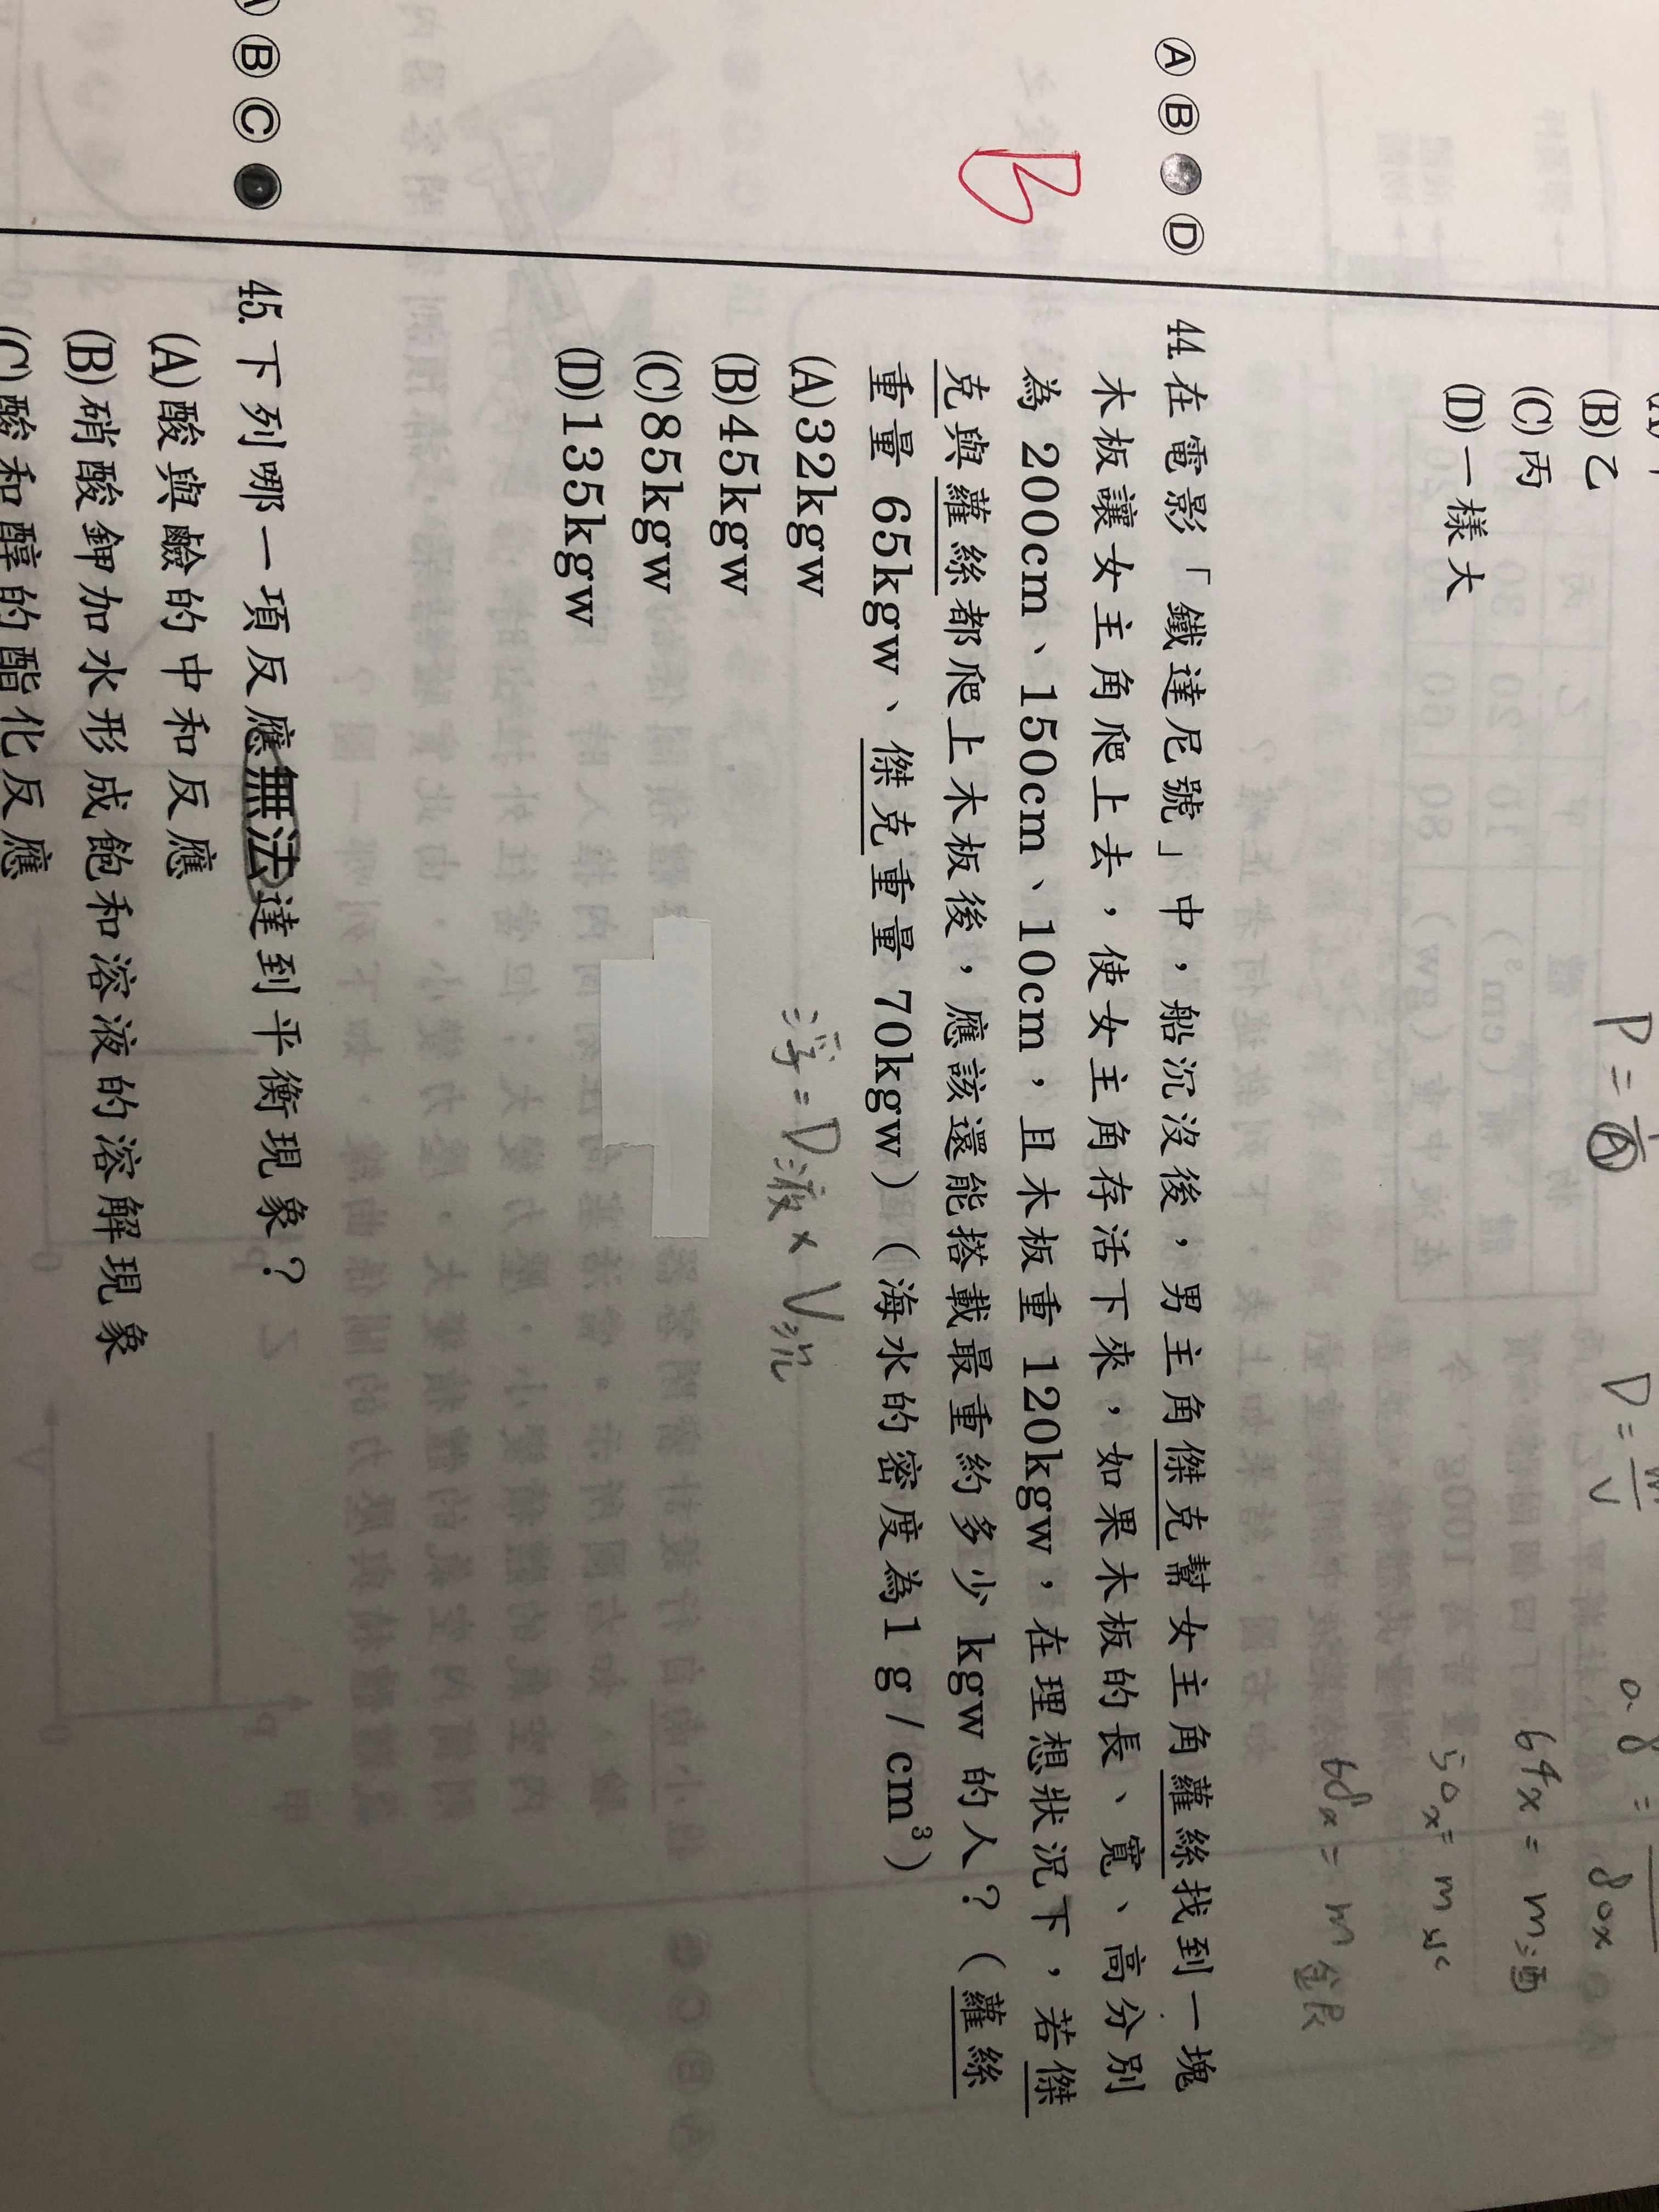 (B)乙
(C)丙
(D)一樣大
P=
D=m/V
64x = m酒
80x
50x = m
68x = m
Ⓐ Ⓑ Ⓓ
B
44.在電影「鐵達尼號」中,船沉沒後,男主角傑克幫女主角蘿絲找到一塊
木板讓女主角爬上去,使女主角存活下來,如果木板的長、寬、高分別
為 200cm、150cm、10cm,且木板重 120kgw,在理想狀況下,若傑
克與蘿絲都爬上木板後,應該還能搭載最重約多少 kgw 的人?(蘿絲
重量 65kgw、傑克重量 70kgw)(海水的密度為1 g/cm³)
(A)32kgw
(B)45kgw
(C)85kgw
(D)135kgw
浮=D液×V沉
Ⓑ Ⓒ
45.下列哪一項反應無法達到平衡現象?
(A)酸與鹼的中和反應
(B)硝酸鉀加水形成飽和溶液的溶解現象
(C)酸和醇的酯化反應